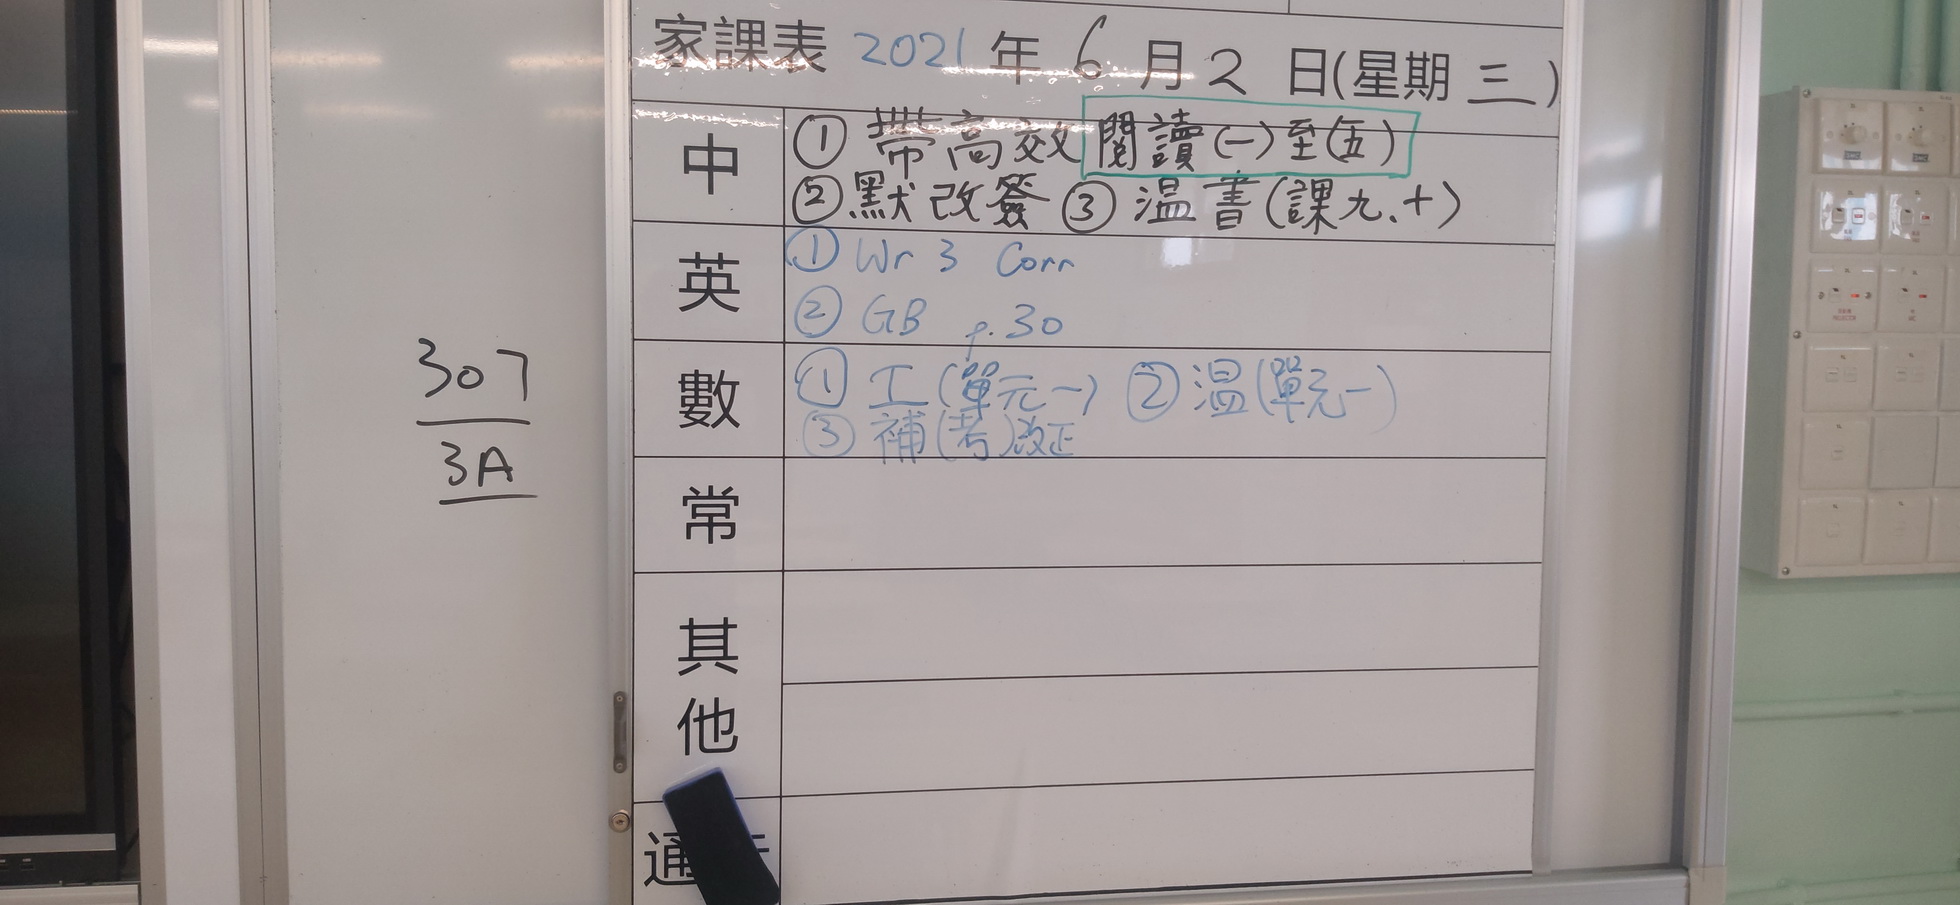 家課表 2021 年 6 月 2 日(星期 三)
中
① 帶高效閱讀(一)至(五)
② 默改簽 ③ 温書(課九、十)
英
① Wr 3 Corr
② GB p.30
數
① 工(單元一) ② 温(單元一)
③ 補(考)改正
常
其他
通
307
3A